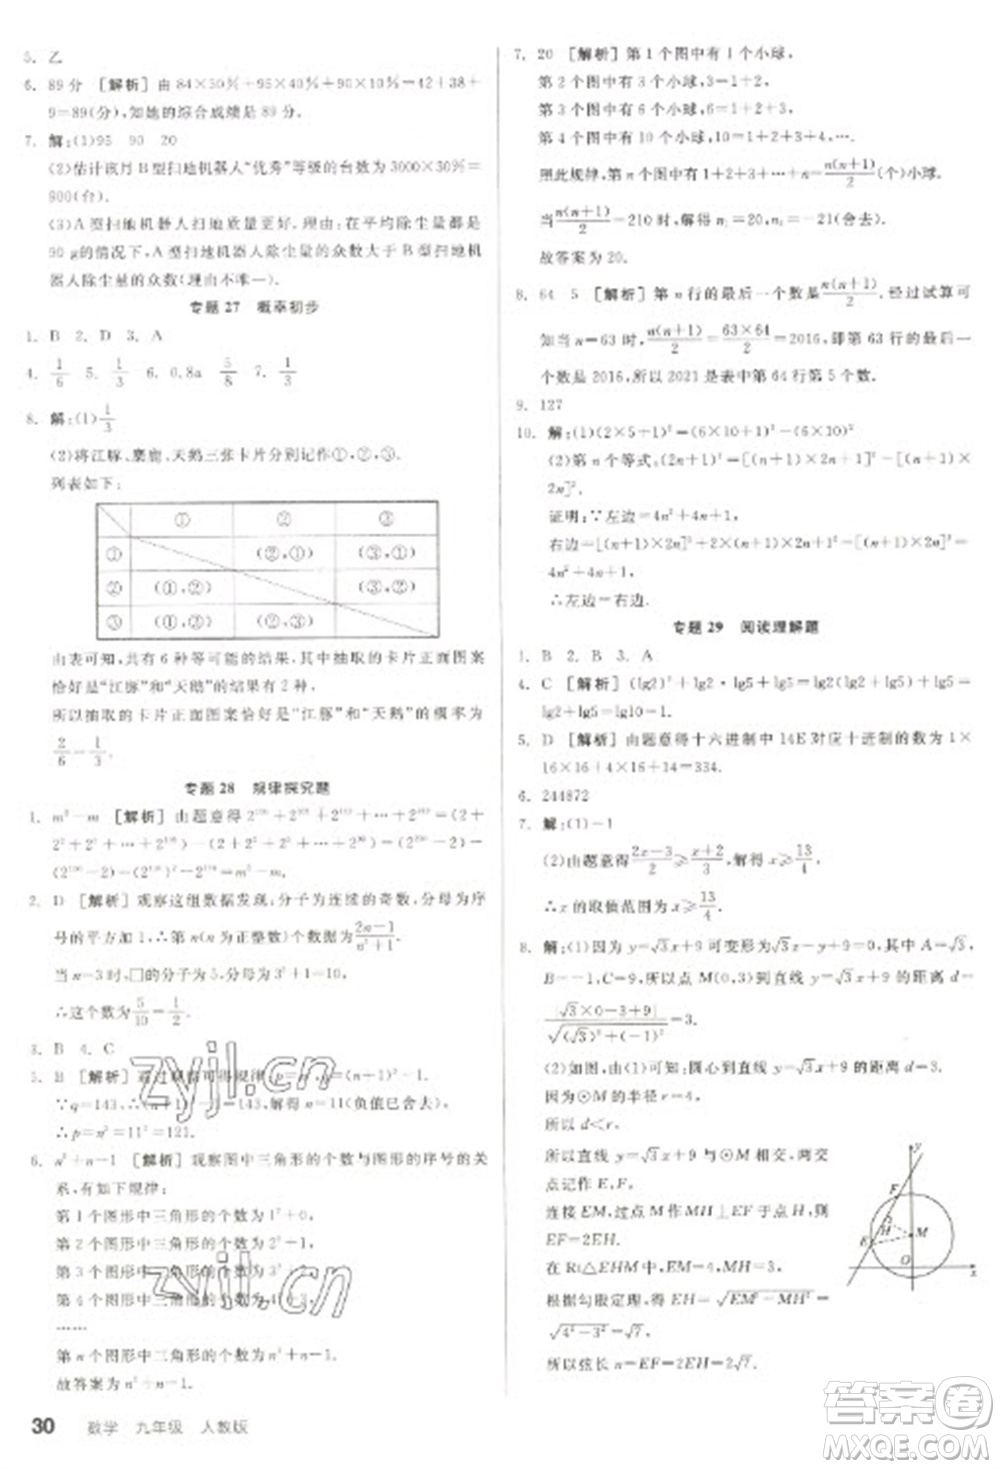 5. 乙
6. 89分 [解析] 由 84×30%+95×40%+88×
=89(分),知她的综合成绩是 89 分.
7. 解:(1)95 90 20
(2)估计该月 B 型扫地机器人“优秀”等级的台数为 3000×30%=
900(台).
(3)A 型扫地机器人扫地质量更好,理由:在平均除尘量都是
90 g的情况下,A 型扫地机器人除尘量的众数大于 B 型扫地机
器人除尘量的众数(理由不唯一).
专题 27 概率初步
1. B 2. D 3. A
4. 1/6 5. 1/3 6. 0.8a 7. 5/8 8. 1/3
8. 解:(1)1/3
(2)将江豚、麋鹿、天鹅三张卡片分别记作①,②,③.
列表如下:
① ② ③
① (②,①) (③,①)
② (①,②) (③,②)
③ (①,③) (②,③)
由表可知,共有 6 种等可能的结果,其中抽取的卡片正面图案
恰好是“江豚”和“天鹅”的结果有 2 种,
所以抽取的卡片正面图案恰好是“江豚”和“天鹅”的概率为
2/6=1/3.
专题 28 规律探究题
1. m²-m [解析] 由题意得
2. D [解析] 观察这组数据发现:分子为连续的奇数,分母为序
号的平方加 1,∴第 n(n 为正整数)个数据为(2n-1)/(n²+1).
当 n=3时,□的分母为 3²+1=10.
∴这个数为5/10=1/2.
3. B 4. C
5. B [解析] 通过观察可得规律:p=n²,q=(n+1)²-1.
∵q=143,∴(n+1)²-1=143,解得 n=11(负值已舍去).
∴p=n²=11²=121.
6. n²+n-1 [解析] 观察图中三角形的个数与图形的序号的关
系,有如下规律:
第 1 个图形中三角形的个数为 1²+0;
第 2 个图形中三角形的个数为 2²+1;
第 3 个图形中三角形的个数为 3²+2;
第 4 个图形中三角形的个数为 4²+3;
……
第 n 个图形中三角形的个数为 n²+n-1.
故答案为 n²+n-1.
30 数学 九年级 人教版
7. 20 [解析] 第 1 个图中有 1 个小球,
第 2 个图中有 3 个小球,3=1+2,
第 3 个图中有 6 个小球,6=1+2+3,
第 4 个图中有 10 个小球,10=1+2+3+4,
……
照此规律,第 n 个图中有 1+2+3+…+n=n(n+1)/2(个)小球.
当n(n+1)/2=210 时,解得 n₁=20,n₂=-21(舍去).
故答案为 20.
8. 64 5 [解析] 第 n 行的最后一个数是n(n+1)/2,经过试算可
知,当 n=63 时,n(n+1)/2=63×64/2=2016,即第 63 行的最后一
个数是 2016,所以 2021是表中第 64 行第 5 个数.
9. 127
10. 解:(1)(2×5+1)²=(6×10+1)²-(6×10)²
(2)第 n 个等式:(2n+1)²=[(n+1)×2n+1]²-[(n+1)×
2n]².
证明:∵左边=4n²+4n+1,
右边=[(n+1)×2n]²+2×(n+1)×2n+1²-[(n+1)×
2n]²=4n²+4n+1.
∴左边=右边.
专题 29 阅读理解题
1. B 2. B 3. A
4. C [解析] (lg2)²+lg2·lg5+lg5=lg2(lg2+lg5)+lg5=
lg2+lg5=lg10=1.
5. D [解析] 由题意得十六进制中 14E 对应十进制的数为 1×
16×16+4×16+14=334.
6. 244872
7. 解:(1)-1
(2)由题意得(2x-3)/2≥(x+2)/4,解得 x≥
∴x 的取值范围为 x≥
8. 解:(1)因为 y=√3x+9可变形为√3x-y+9=0,所以其中 A=√3,
B=-1,C=9,所以点 M(0,3)到直线 y=√3x+9 的距离 d=
|√3×0-3+9|/√((√3)²+(-1)²)=3.
(2)如图,由(1)可知:圆心到直线的距离 d=3.
因为⊙M 的半径 r=4,
所以 d<r.
所以直线与⊙M 相交,两交
点记作 E,F.
连接 EM,过点 M 作 MH⊥EF 于
点 H.
在 Rt△EHM 中,EM=4,MH=3,
根据勾股定理,得 EH=√(EM²-MH²)=
√(4²-3²)=√7.
所以弦长 n=EF=2EH=2√7.
F H 3 M E O x
zyjl.cn
zyjl.cn
答案圈
MXQE.COM